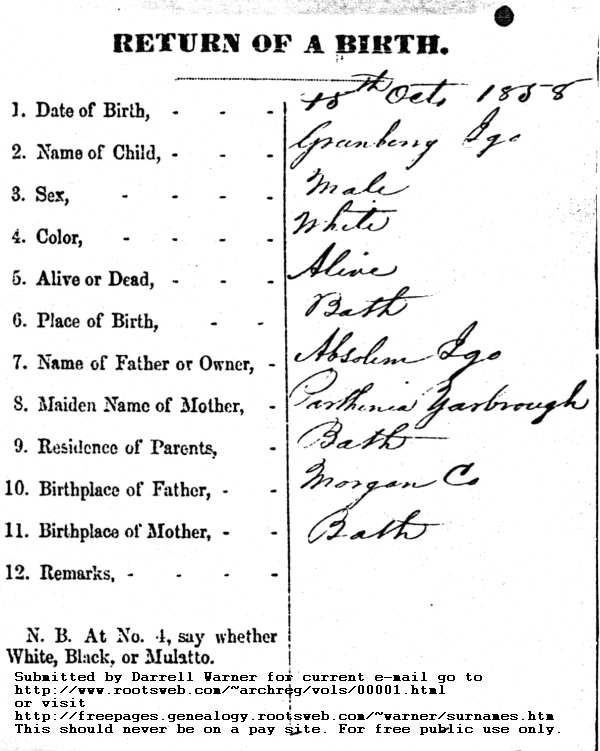 RETURN OF A BIRTH.
1. Date of Birth, - - - 15th Oct. 1858
2. Name of Child, - - - Greenberry Igo
3. Sex, - - - - Male
4. Color, - - - - White
5. Alive or Dead, - - - Alive
6. Place of Birth, - - Bath
7. Name of Father or Owner, - Absolem Igo
8. Maiden Name of Mother, - Parthenia Yarbrough
9. Residence of Parents, - Bath
10. Birthplace of Father, - - Morgan Co
11. Birthplace of Mother, - - Bath
12. Remarks, - - - -
N. B. At No. 4, say whether
White, Black, or Mulatto.
Submitted by Darrell Warner for current e-mail go to
http://www.rootsweb.com/~archreg/vols/00001.html
or visit
http://freepages.genealogy.rootsweb.com/~warner/surnames.htm
This should never be on a pay site. For free public use only.